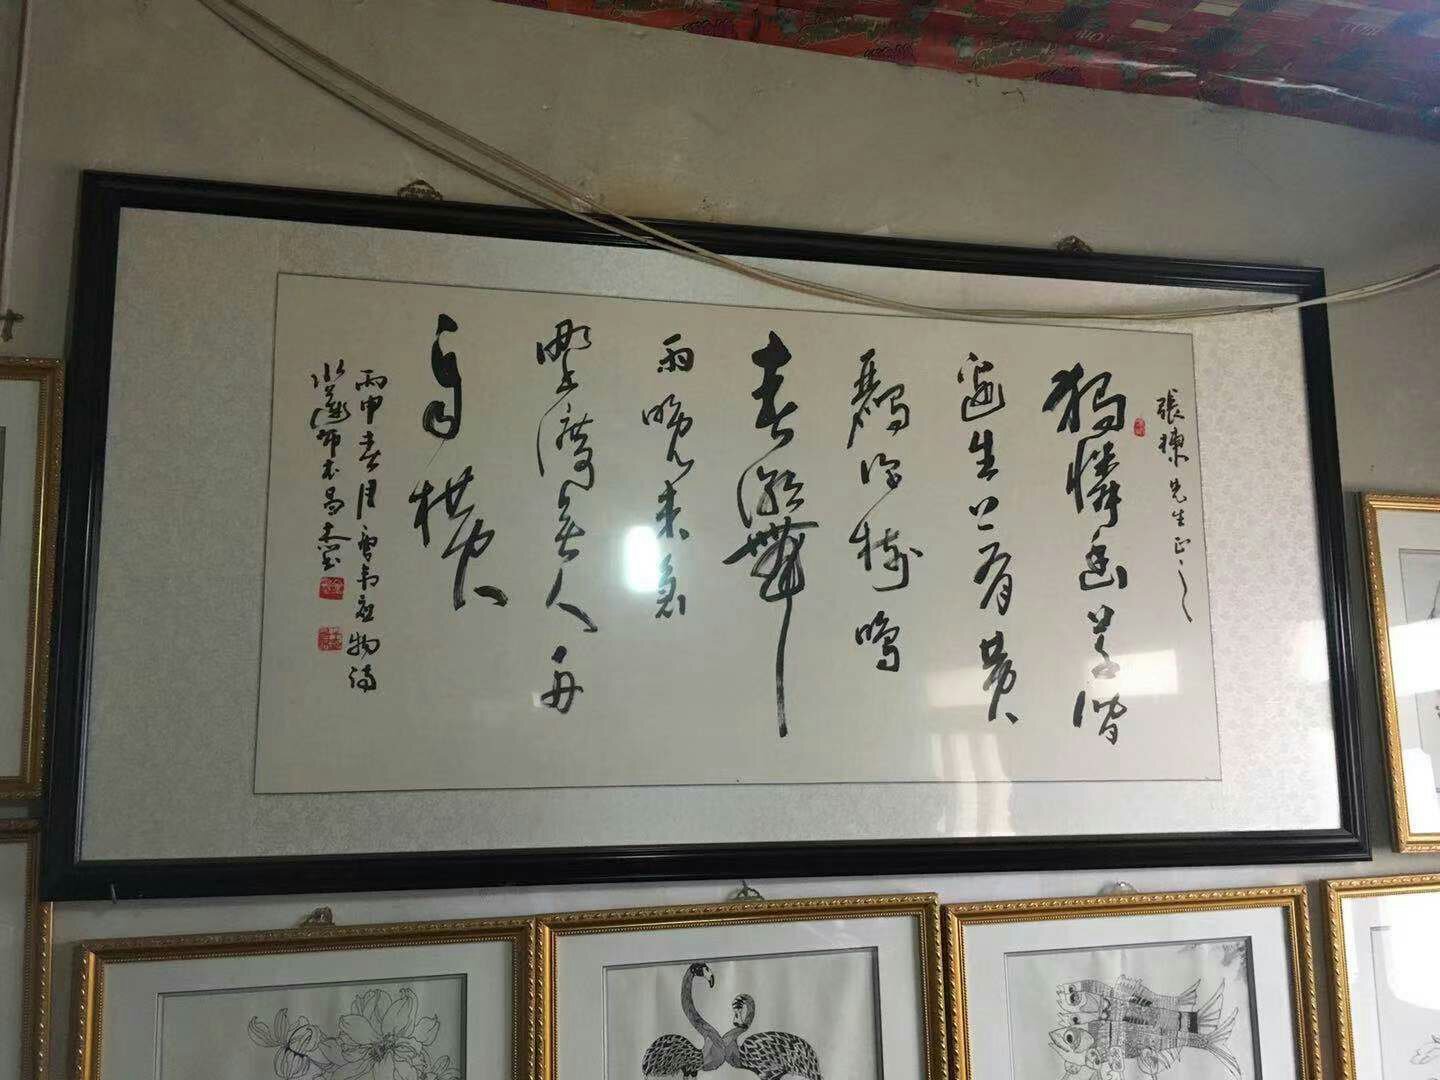 張棟先生正之
獨憐幽草澗
邊生上有黃
鸝深樹鳴
春潮帶
雨晚來急
野渡無人舟
自橫
丙申春月書韋應物詩